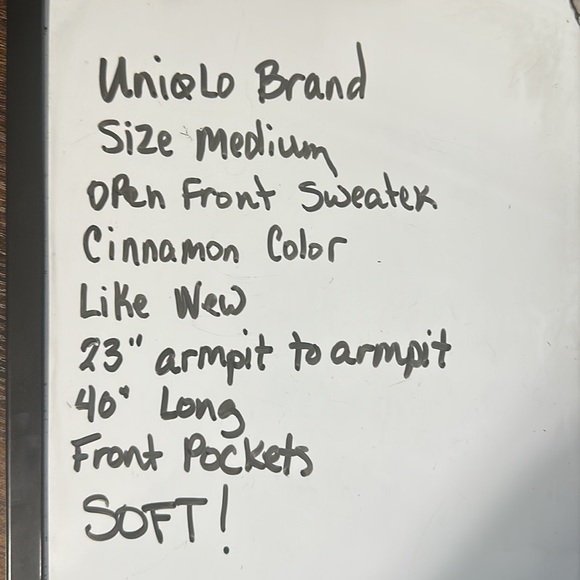 UNiQLo Brand
Size Medium
OPen Front Sweater
Cinnamon Color
Like New
23" armpit to armpit
40" Long
Front Pockets
SOFT!